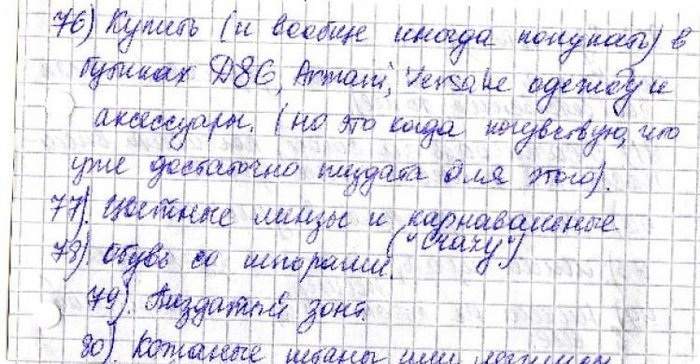 76) Купить (и вообще иногда покупать) в
бутиках D&G, Armani, Versace одежду и
аксессуары. (но это когда почувствую, что
уже достаточно пиздата для этого).
77). Цветные линзы и карнавальные
("Crazy")
78). Обувь со шпорами.
79). Пиздатый зонт.
80). Кожаные штаны или